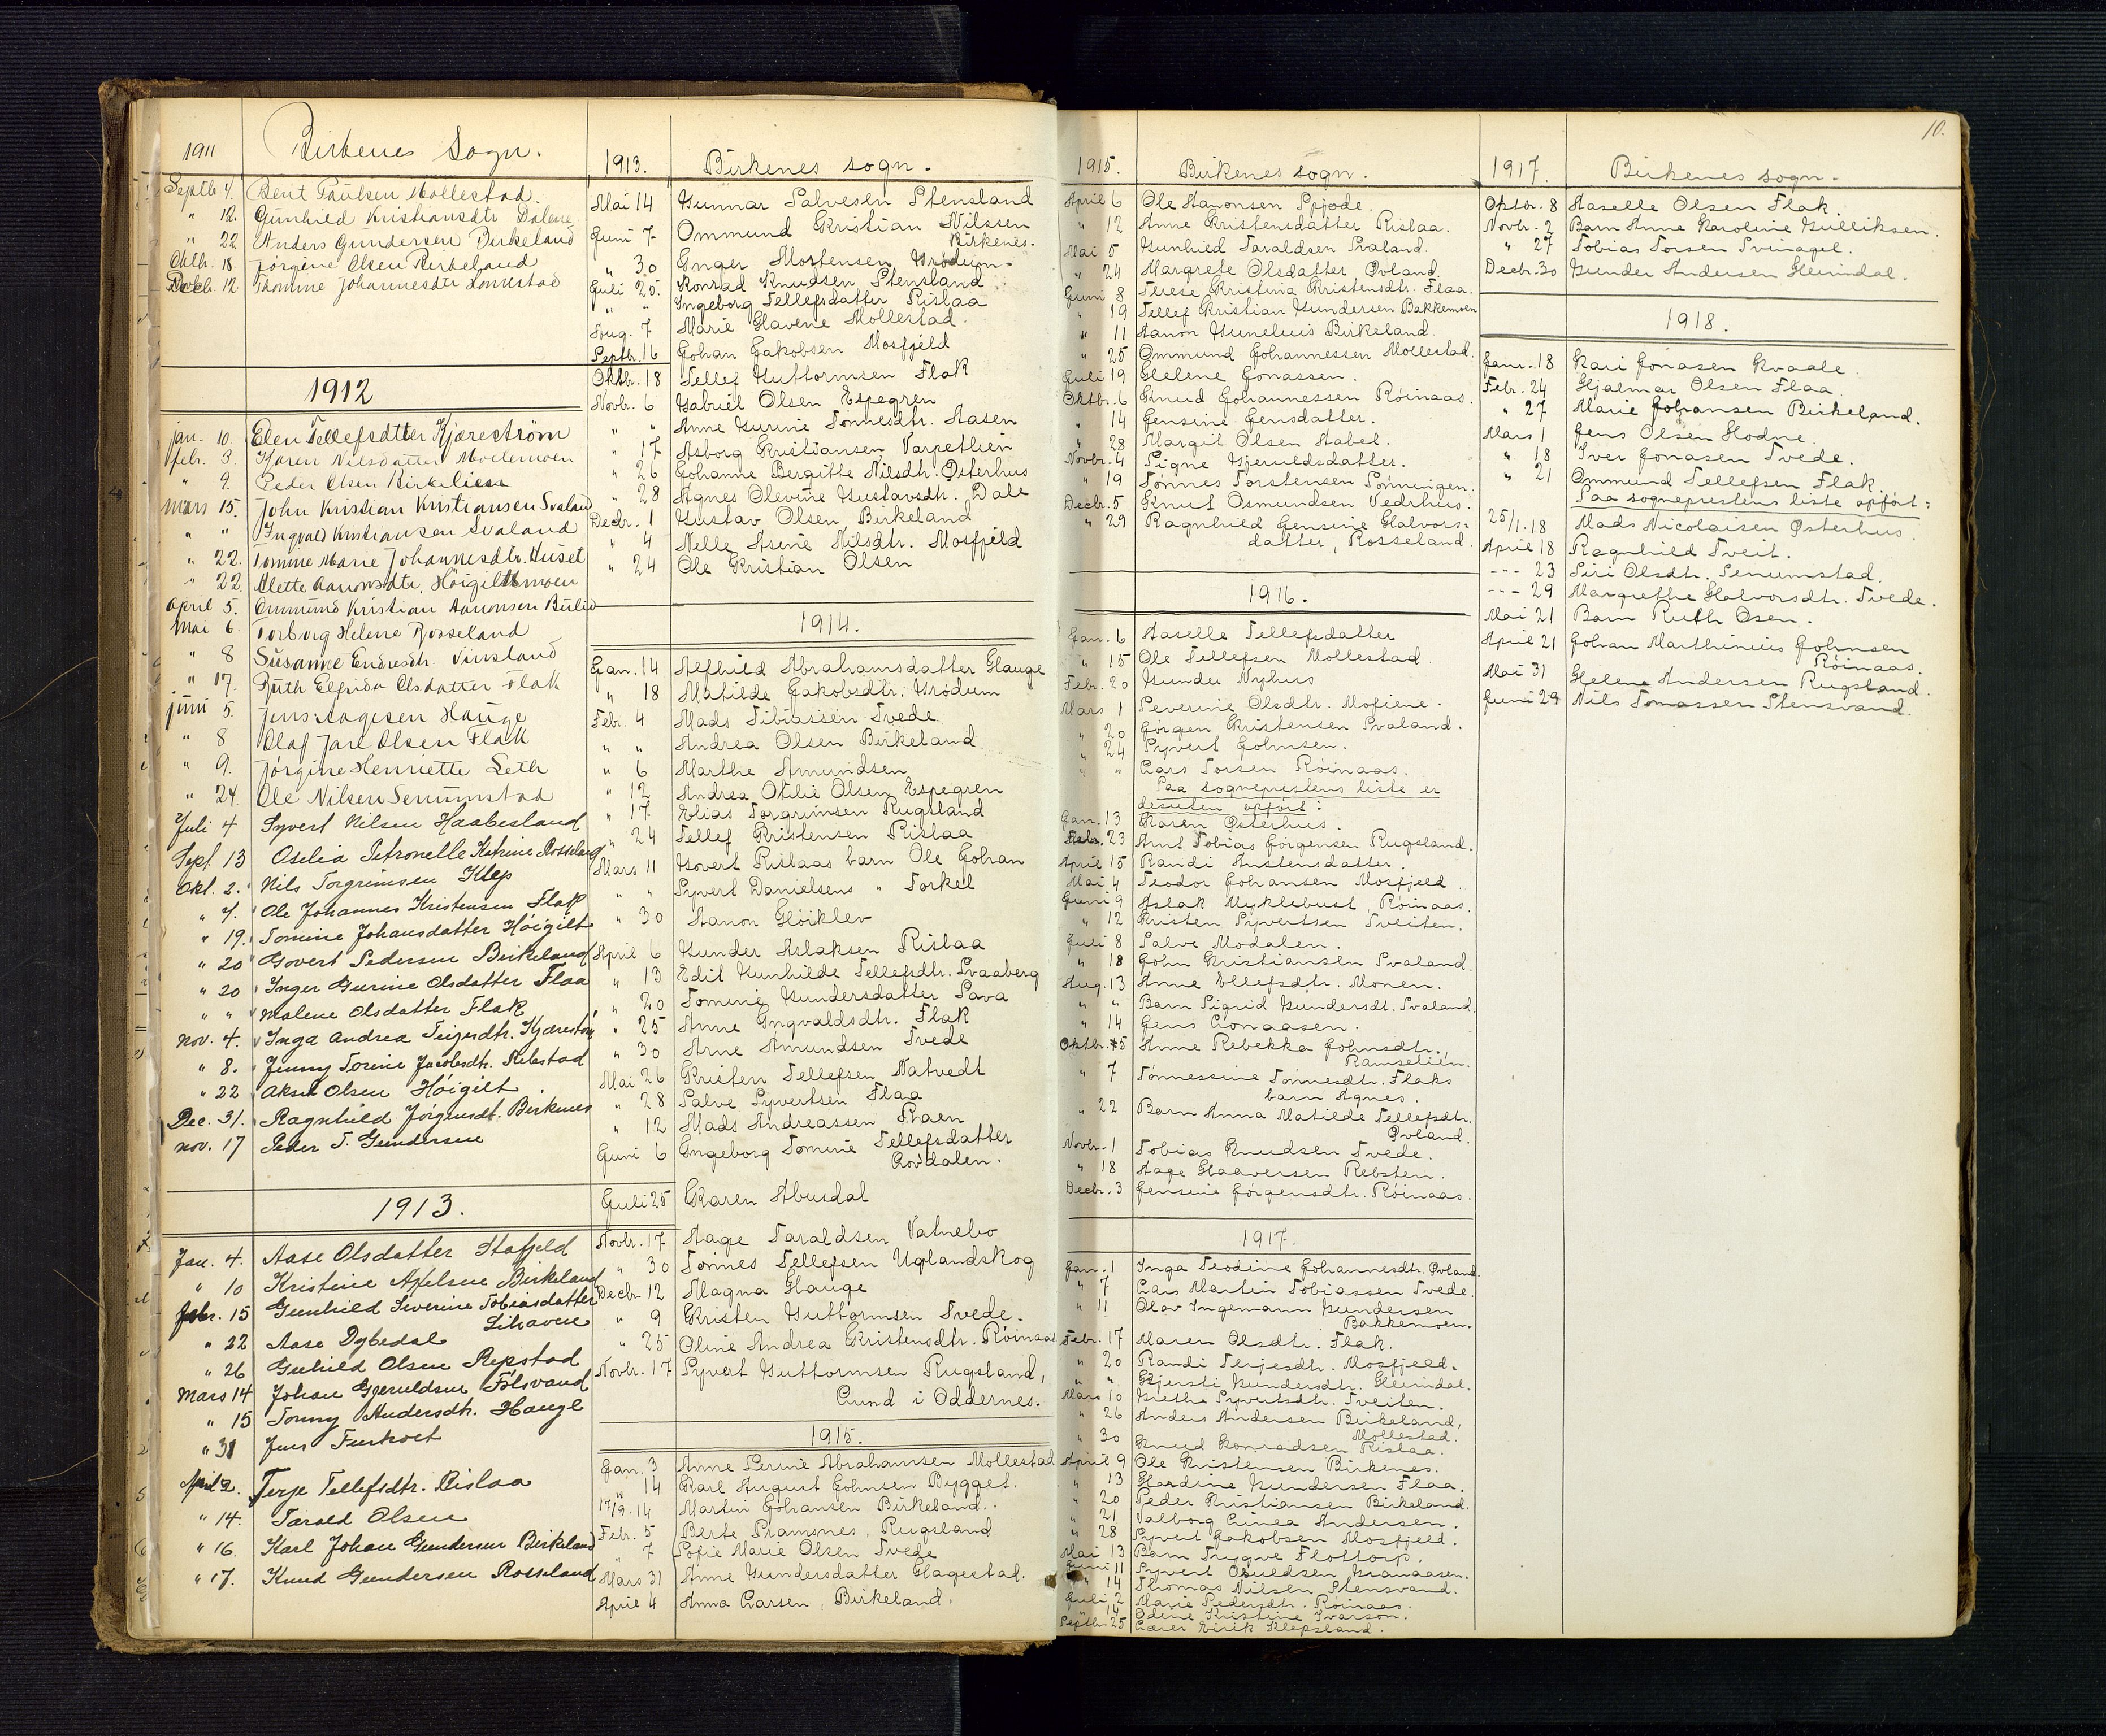 1911 Birkenes Sogn.
Septb 4. Berit Paulsen Mollestad.
" 12. Gunhild Kristiansdtr Dalene
" 22 Anders Gundersen Birkeland
Oktb. 18. Jørgine Olsen Birkeland
Decb. 12. Thomine Johannesdtr
1912
jan. 10. Elen Tellefsdtter Kjærestrøm
febr. 3. Karen Nilsdatter Moelemoen
" 9. Peder Olsen Birkeliea
mars 15. John Kristian Kristiansen Svaland
" " Ingvald Kristiansen Svaland
" 22. Tomine Marie Johannesdtr. Huset
" 22. Alette Aanonsdtr. Høigiltsmoen
april 5. Ommund Kristian Aanonsen
Mai 6. Torborg Helene Rosseland
" 8 Susanne Endresdtr. Vinsland
" 17. Ruth Elfrida Olsdatter Flak
juni 5. Jens Aagesen Hauge
" 8 Olaf Jarl Olsen Flak
" 9. Jørgine Henriette Seth
" 24. Ole Nilsen Senumstad
Juli 4 Syvert Nilsen Haabesland
Sept. 13 Oselia Petronelle Katrine Rosseland
Okt. 2. Nils Torgrimsen Klep
" 4. Ole Johannes Kristensen Flak
" 19. Tomine Johansdatter Høigilt
" 20 Govert Pedersen Birkeland
" 20 Inger Gurine Olsdatter Flaa
" " Malene Olsdatter Flak
Nov. 4. Inga Andrea Terjesdtr. Kjærestrøm
" 8. Jenny Torine Jacobsdtr. Rebstad
" 22 Aksel Olsen Høigilt
Dec. 31. Ragnhild Jørgensdt. Birkenes
Nov. 17 Peder T. Gundersen
1913.
Jan. 4. Aase Olsdatter Stafjeld
" 10 Kristine Axelsen Birkeland
Febr. 15 Gunhild Severine Tobiasdatter
Lihaven
" 22 Aase Dybedal
" 26 Gunhild Olsen Repstad
Mars 14 Johan Gjeruldsen Følsvand
" 15 Tonny Andersdtr. Hauge
" 31 Jens Furholt
April 2. Terje Tellefsdtr. Rislaa
" 14. Tarald Olsen
" 16. Karl Johan Gundersen Birkeland
" 17. Knud Gundersen Rosseland
1913. Birkenes sogn.
Mai 14 Gunnar Salvesen Stensland
Juni 7 Ommund Kristian Nilssen
Birkenes.
" 30 Inger Mortensen Grødum.
Juli 25. Konrad Knudsen Stensland
" " Ingeborg Tellefsdatter Rislaa
Aug. 7 Marie Glavene Mollestad.
Septbr. 16 Johan Jakobsen Mosfjeld
Oktbr. 18 Tellef Guttormsen Flak
Novbr. 6 Gabriel Olsen Espegren
" " Anne Gurine Tønnesdtr. Aasen
" 17 Asborg Kristiansen Varpetlien
" 26 Johanne Bergitte Nilsdtr. Østerhus
" 28 Agnes Olevine Gustavsdtr. Dale
Decbr. 1 Gustav Olsen Birkeland
" 4 Nelle Asene Nilsdtr. Mosfjeld
" 24 Ole Kristian Olsen
1914.
Jan. 14 Alfhild Abrahamsdatter Hauge
" 18 Matilde Jakobsdtr. Grødum
Feb. 4 Mads Tobiassen Tvede
" " Andrea Olsen Birkeland
" 6 Marthe Amundsen
" 12 Andrea Otilie Olsen Espegren
" 17 Elias Torgrimsen Rugsland
" 24 Tellef Kristensen Rislaa
Mars 11 Govert Rislaas barn Ole Johan
" " Syvert Danielsens " Torkel
" 30 Aanon Høiklev
April 6 Gunder Aslaksen Rislaa
" 13 Edit Gunhilde Tellefsdtr. Svaaberg
" 20 Tomine Gundersdatter Sava
" 25 Anne Ingvaldsdtr. Flak
" 30 Arne Amundsen Tvede
Mai 26 Kristen Tellefsen Natvedt
" 28 Salve Syvertsen Flaa
" 12 Mads Andreassen Raen
Juni 6 Ingeborg Tomine Tellefsdatter
Rovdalen.
Juli 25 Karen Abusdal
Novbr. 17 Aage Taraldsen Vatnebo
" 30 Tønnes Tellefsen Uglandskog
Decbr 12 Magna Hauge
" 9 Kristen Guttormsen Tvede.
" 25 Oline Andrea Kristensdtr. Røinaas
Novbr. 17 Syvert Guttormsen Rugsland,
Lund i Oddernes.
1915.
Jan. 3 Anne Serine Abrahamsen Mollestad
" 14 Karl August Johnsen Bygget.
17/9. 14 Martin Johansen Birkeland.
Febr. 5 Berte Stamsnes, Rugsland
" 7 Sofie Marie Olsen Tvede
Mars 31 Anne Gundersdatter Hagestad.
April 4 Anna Larsen, Birkeland.
10.
1915. Birkenes sogn.
April 6 Ole Aanonsen Spjøde.
" 12 Anne Kristensdatter Rislaa.
Mai 5 Gunhild Taraldsen Svaland.
" 24 Margrete Olsdatter Øvland.
Juni 8 Terese Kristina Kristensdtr. Flaa.
" 19 Tellef Kristian Gundersen Bakkemoen
" 11 Aanon Guneluis Birkeland.
" 25 Ommund Johannessen Mollestad.
Juli 19 Helene Jonassen.
Oktbr. 6 Knud Johannessen Røinaas.
" 14 Jensine Jensdatter.
" 28 Margit Olsen Aabel.
Novbr. 4 Signe Gjeruldsdatter.
" 19 Tønnes Torstensen Tønneigen.
Decbr. 5 Knut Osmundsen Vedrhus.
" 29 Ragnhild Jensine Halvors=
datter, Rosseland.
1916.
Jan. 6 Aaselle Tellefsdatter
" 15 Ole Tellefsen Mollestad.
Febr. 20 Gunder Nyhus
Mars 1 Severine Olsdtr. Mosiene.
" 20 Jørgen Kristensen Svaland.
" 24 Syvert Johnsen.
" " Lars Torsen Røinaas.
Paa sogneprestens liste er
desuten opført:
Jan. 13 Karen Østerhus.
Febr. 23 Arnt Tobias Jørgensen Rugsland.
April 15 Randi Austensdatter.
Mai 4 Teodor Johansen Mosfjeld.
Juni 9 Aslak Myklebust, Røinaas.
" 12 Kristen Syvertsen Tveiten.
Juli 8 Salve Modalen.
" 18 John Kristiansen Svaland.
Aug. 13 Anne Ollefsdtr. Monen.
" " Barn Sigrid Gundersdt. Svaland.
" 14 Jens Lionaasen.
Oktbr. 5 Anne Rebekka Johnsdtr.
Ramselien.
" 7 Tønnessine Tønnesdtr. Flaks
barn Agnes.
" 22 Barn Anna Matilde Tellefsdtr.
Øvland.
Novbr. 1 Tobias Knudsen Tvede.
" 18 Aage Haaversen Rebsten.
Decbr. 3 Jensine Jørgensdtr. Røinaas.
1917.
Jan. 1 Inga Teodine Johannesdtr. Øvland.
" 7 Lars Martin Tobiassen Tvede.
" 11 Olav Ingemann Gundersen
Bakkemoen.
Febr. 17 Maren Olsdtr. Flak.
" 20 Randi Terjesdtr. Mosfjeld.
" " Kjersti Gundersdtr. Heimdal.
Mars 10 Grethe Syvertsdtr. Tveiten.
" 26 Anders Andersen Birkeland,
Mollestad.
" 30 Knud Konradsen Rislaa.
April 9 Ole Kristensen Birkenes.
" 13 Hardine Gundersen Flaa.
" 20 Peder Kristiansen Birkeland.
" 21 Valborg Linea Andersen.
" 28 Syvert Jakobsen Mosfjeld.
Mai 13 Barn Trygve Flottorp.
Juni 11 Syvert Osuldsen Granaasen.
" 14 Thomas Nilsen Stensvand.
Juli 2 Marie Pedersdtr. Røinaas.
" 14 Odine Kristine Ivarson.
Septbr. 25 Lærer Eirik Klepsland.
1917. Birkenes sogn.
Oktbr. 8 Aaselle Olsen Flak.
Novbr. 2 Barn Anne Karoline Gulliksen.
" 27 Tobias Torsen Svinagel.
Decbr. 30 Gunder Andersen Heimdal.
1918.
Janr. 18 Kari Jonasen Kvaale.
Febr. 24 Hjalmar Olsen Flaa.
" 27 Marie Johansen Birkeland.
Mars 1 Jens Olsen Hodne.
" 18 Iver Jonasen Tvede.
" 21 Ommund Tellefsen Flak.
Paa sogneprestens liste opført:
25/1.18 Mads Nicolaisen Østerhus.
April 18 Ragnhild Tveit.
--- 23 Siri Olsdtr. Senumstad.
--- 29 Margrethe Halvorsdtr. Tvede.
Mai 21 Barn Ruth Osen.
April 21 Johan Marthinius Johnsen
Røinaas.
Mai 31 Helene Andersen Rugsland.
Juni 29 Nils Tomassen Stensvand.